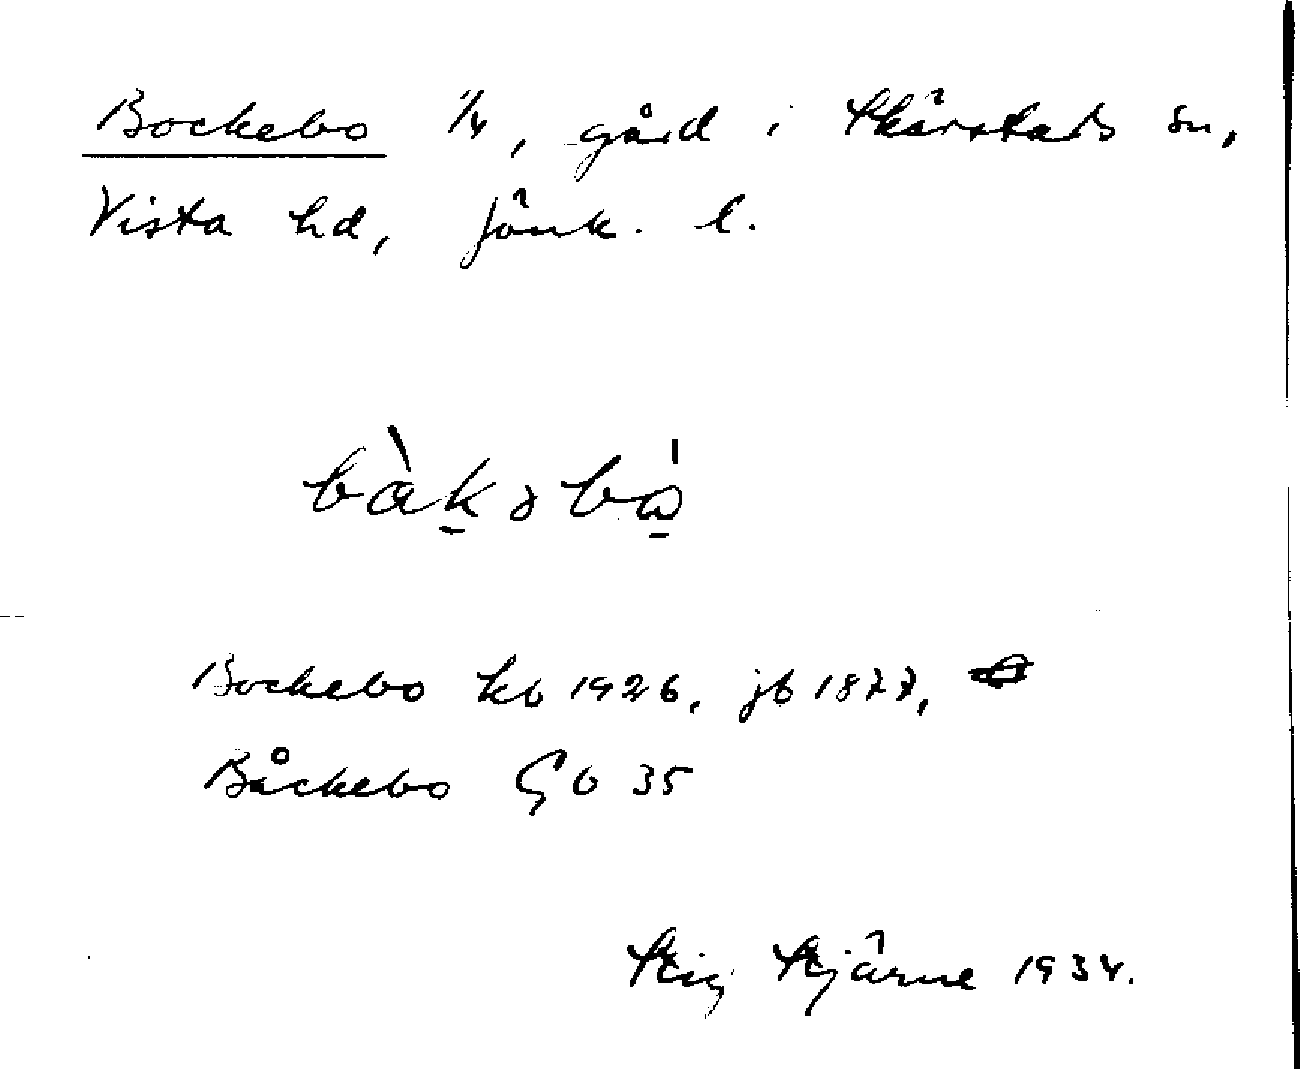 Bockebo 1/4, gård i Skärstads sn,
Vista hd, Jönk. l.
bàkəbo̱
Bockebo kb 1926, jb 1877,
Båckebo Gb 35
Stig Stjärne 1934.